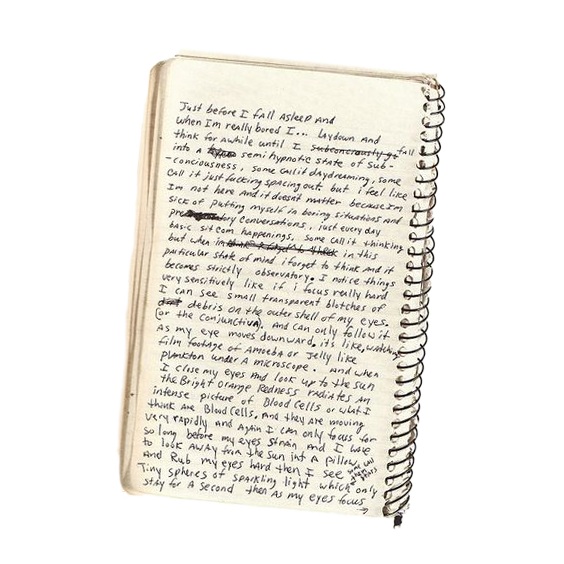 Just before I fall asleep and
when I'm really bored I... laydown and
think for awhile until I subconciously go fall
into a semi hypnotic state of sub-
-conciousness, some call it daydreaming, some
call it just fucking spacing out but i feel like
Im not here and it doesnt matter because Im
sick of putting myself in boring situations and
conversations, just every day
basic sit com happenings, some call it thinking
but when in in this
particular state of mind i forget to think and it
becomes stricly observatory. I notice things
very sensitively like if i focus really hard
I can see small transparent blotches of
debris on the outer shell of my eyes.
(or the conjunctiva). And can only follow it
As my eye moves downward, it's like, watching
film footage of Amoeba or Jelly like
plankton under A microscope. And when
I close my eyes And look up to the sun
the Bright Orange Redness radiates An
intense picture of Blood Cells or what I
think are Blood Cells. And they are moving
very rapidly and again I can only focus for
so long before my eyes strain and I have
to look away from the sun into a pillow
And Rub my eyes hard then I see some call them stars
Tiny spheres of sparkling light which only
stay for a second then As my eyes focus
→